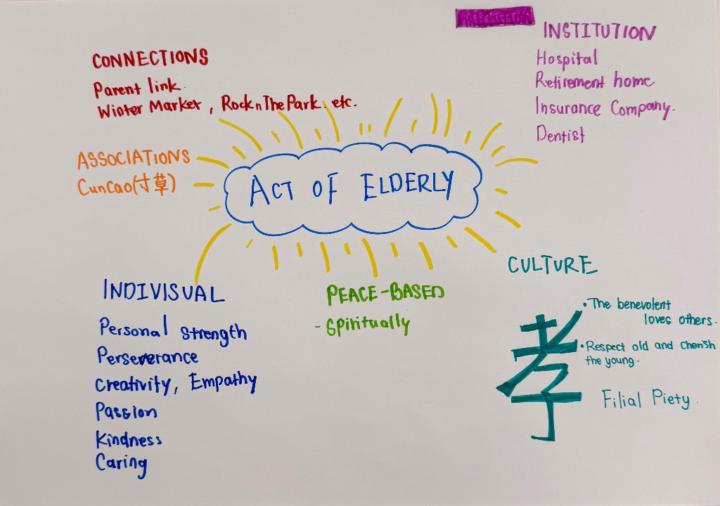 CONNECTIONS
Parent link.
Winter Market, RocknThePark. etc.
INSTITUTION
Hospital
Retirement home
Insurance Company.
Dentist
ASSOCIATIONS
CunCao(寸草)
ACT OF ELDERLY
INDIVISUAL
Personal strength
Perseverance
Creativity, Empathy
Passion
Kindness
Caring
PEACE-BASED
- Spiritually
CULTURE
• The benevolent
loves others.
• Respect old and cherish
the young.
孝
Filial Piety.